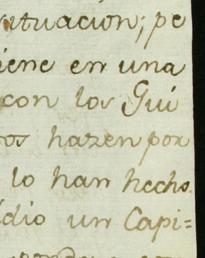 situacion; pe
iene en una
con los Gui
os hazen por
lo han hecho.
dio un Capi=